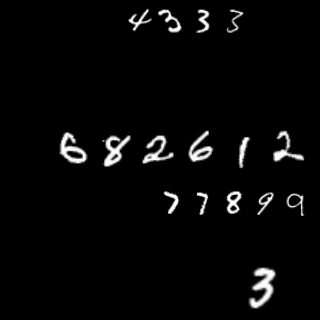 4333
682612
77899
3